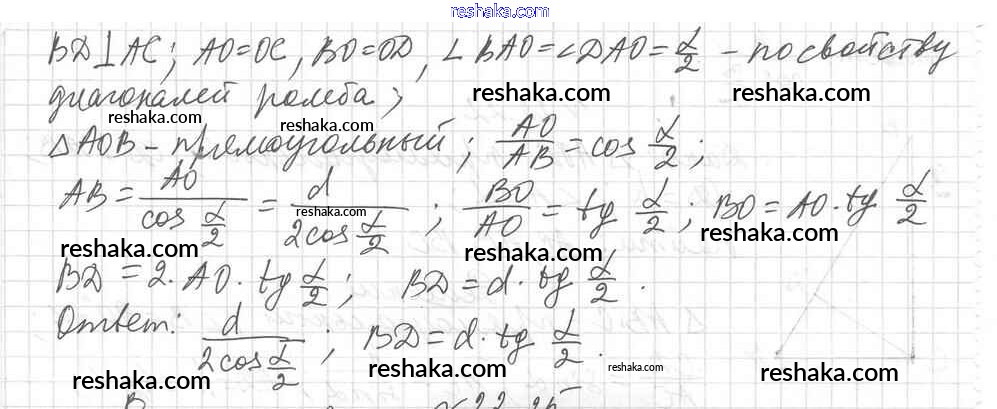 reshaka.com
BD⊥AC; AO=OC, BO=OD, ∠BAO=∠DAO=α/2 - по свойству
диагоналей ромба;
reshaka.com reshaka.com
reshaka.com reshaka.com
△AOB - прямоугольный; AO/AB = cos α/2;
AB = AO/cos α/2 = d/2cos α/2; BO/AO = tg α/2; BO = AO · tg α/2
reshaka.com reshaka.com reshaka.com
BD = 2 · AO · tg α/2; BD = d · tg α/2.
Ответ: d/2cos α/2; BD = d · tg α/2.
reshaka.com reshaka.com reshaka.com